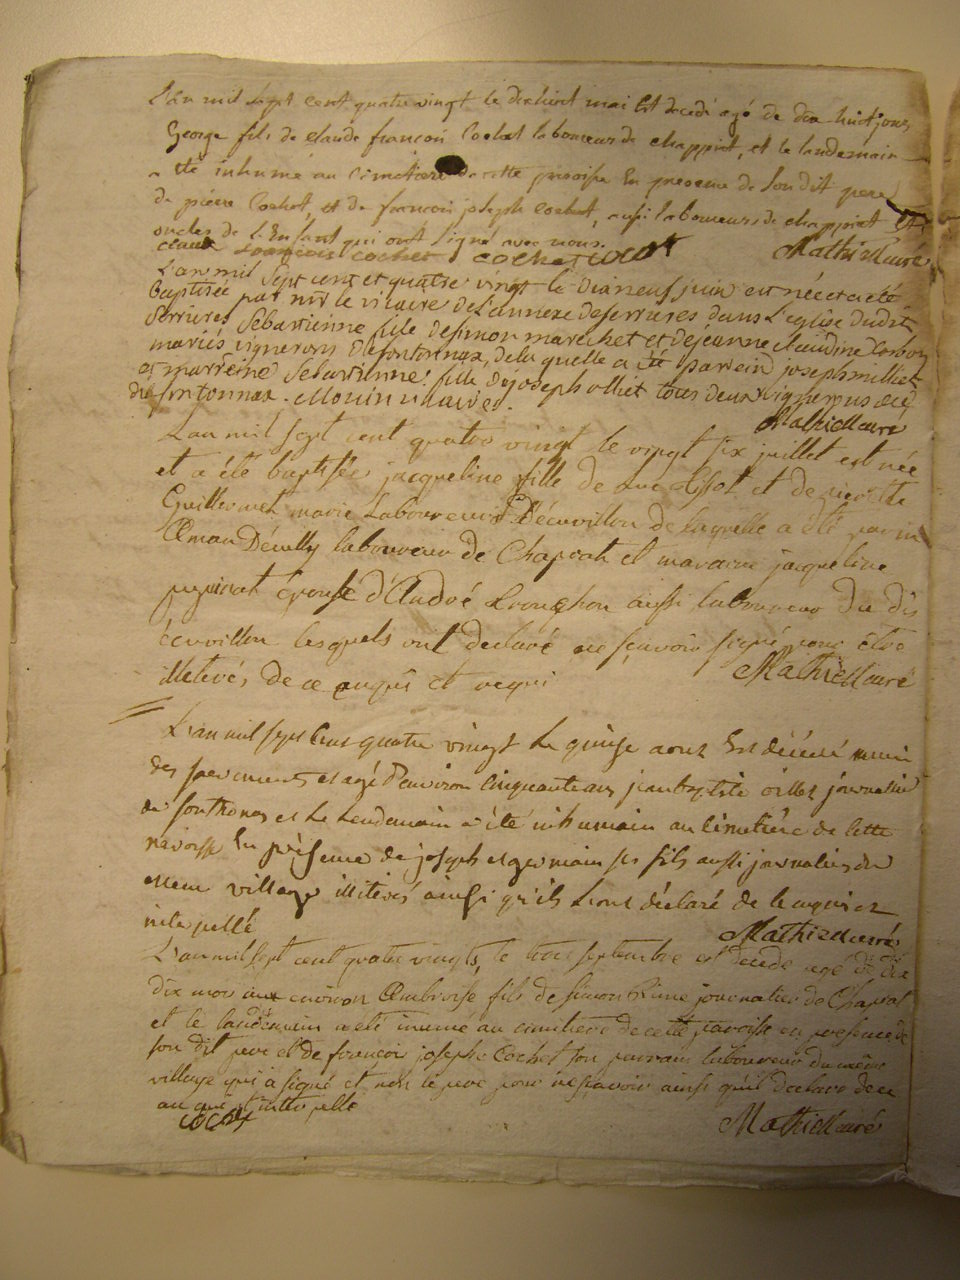 L'an mil sept cent quatre vingt le dixhuit mai Est decedé agé de dix huit jours
George fils de claude françoi Cochet laboureur de chappoit, et le landemain
a été inhumé au Cimetiere de cette paroisse En presence de Son dit pere
de pierre Cochet, et de francoi joseph cochet, aussi laboureurs de chappoit et
oncles de l'Enfant qui ont Signé avec nous.
claude françois cochet cochet cochet Mathieu curé
L'an mil Sept cent et quatre vingt le dixneuf juin est née et a été
baptisée par mr le vicaire de l'annexe de serrures dans l'eglise dudit
Serrures Sebastienne fille de simon marechet et de jeanne claudine
mariés vignerons de fontonnax, de laquelle a été parrein joseph milliet
et marreine Sebastienne fille de joseph olliet tous deux vignerons
de fontonnax. Mouin vicaire.
Mathieu curé
L'an mil sept cent quatre vingt le vingt six juillet est née
et a été baptisée jacqueline fille de Luc et de
Guillermet mariés laboureurs d'écuvillon de laquelle a été parin
laboureur de Chapoit et maraine jacqueline
epouse d'André aussi laboureur du dit
écuvillon lesquels ont declaré ne sçavoir signé pour être
illeterés de ce enquis et requi Mathieu curé
L'an mil sept Cent quatre vingt le quinze aoust Est décédé muni
des sacremens et agé d'environ cinquante ans jean baptiste journalier
de fonthonax et le Lendemain a été inhumain au Cimetiére de Cette
paroisse En présence de joseph et germain ses fils aussi journaliers du
meme village illiterés ainsi qu'ils L'ont déclaré de Ce enquis et
interpellé Mathieu curé
L'an mil sept cent quatre vingts, le trois septembre est decedé agé de
dix mois environ Ambroise fils de simon journalier de Chapoit
et le landemain a été inumé au cimitiere de cette paroisse en presence de
son dit pere et de francoi joseph Cochet son parrain laboureur du même
village qui a signé et non le pere pour ne sçavoir ainsi qu'il declare de ce
enquis et interpellé
cochet Mathieu curé